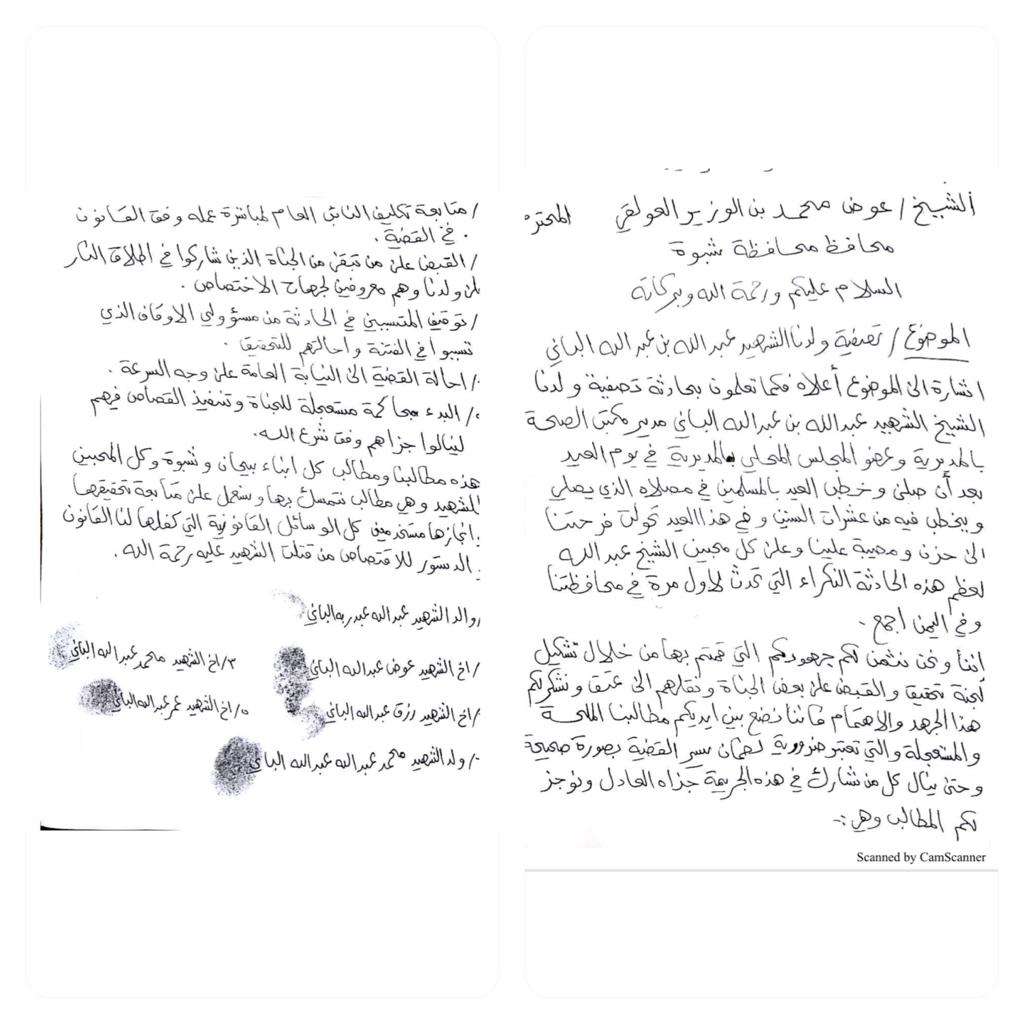 الشيخ / عوض محمد بن الوزير العولقي المحترم
محافظ محافظة شبوة
السلام عليكم ورحمة الله وبركاته
الموضوع / تصفية ولدنا الشهيد عبد الله بن عبد الله الباني
اشارة الى الموضوع أعلاه فكما تعلمون بحادثة تصفية ولدنا
الشيخ الشهيد عبد الله بن عبد الله الباني مدير مكتب الصحة
بالمديرية وعضو المجلس المحلي بالمديرية في يوم العيد
بعد أن صلى وخطب العيد بالمسلمين في مصلاه الذي يصلي
ويخطب فيه من عشرات السنين وفي هذا العيد تحولت فرحتنا
الى حزن ومصيبة علينا وعلى كل محبين الشيخ عبد الله
لعظم هذه الحادثة النكراء التي تحدث لاول مرة في محافظتنا
وفي اليمن اجمع .
اننا ونحن نثمن لكم جهودكم التي قمتم بها من خلال تشكيل
لجنة تحقيق والقبض على بعض الجناة ونقلهم الى عتق ونشكركم
هذا الجهد والاهتمام فاننا نضع بين ايديكم مطالبنا الملحة
والمستعجلة والتي تعتبر ضرورية لضمان سير القضية بصورة صحيحة
وحتى ينال كل من شارك في هذه الجريمة جزاه العادل ونوجز
لكم المطالب وهي :-
Scanned by CamScanner
/ متابعة تكليف النائب العام لمباشرة عمله وفق القانون
في القضية .
/ القبض على من تبقى من الجناة الذين شاركوا في اطلاق النار
على ولدنا وهم معروفين لجهات الاختصاص .
/ توقيف المتسببين في الحادثة من مسؤولي الاوقاف الذي
تسببوا في الفتنة واحالتهم للتحقيق .
/ احالة القضية الى النيابة العامة على وجه السرعة .
/ البدء بمحاكمة مستعجلة للجناة وتنفيذ القصاص فيهم
لينالوا جزاهم وفق شرع الله .
هذه مطالبنا ومطالب كل ابناء بيحان وشبوة وكل المحبين
للشهيد وهي مطالب نتمسك بها وسنعمل على متابعة تحقيقها
انجازها مستخدمين كل الوسائل القانونية التي كفلها لنا القانون
الدستور للاقتصاص من قتلت الشهيد عليه رحمة الله .
/ والد الشهيد عبد الله عبد ربه الباني
/ اخ الشهيد عوض عبد الله الباني ٣/ اخ الشهيد محمد عبد الله الباني
/ اخ الشهيد رزق عبد الله الباني ٥/ اخ الشهيد عمر عبد الله الباني
/ ولد الشهيد محمد عبد الله عبد الله الباني